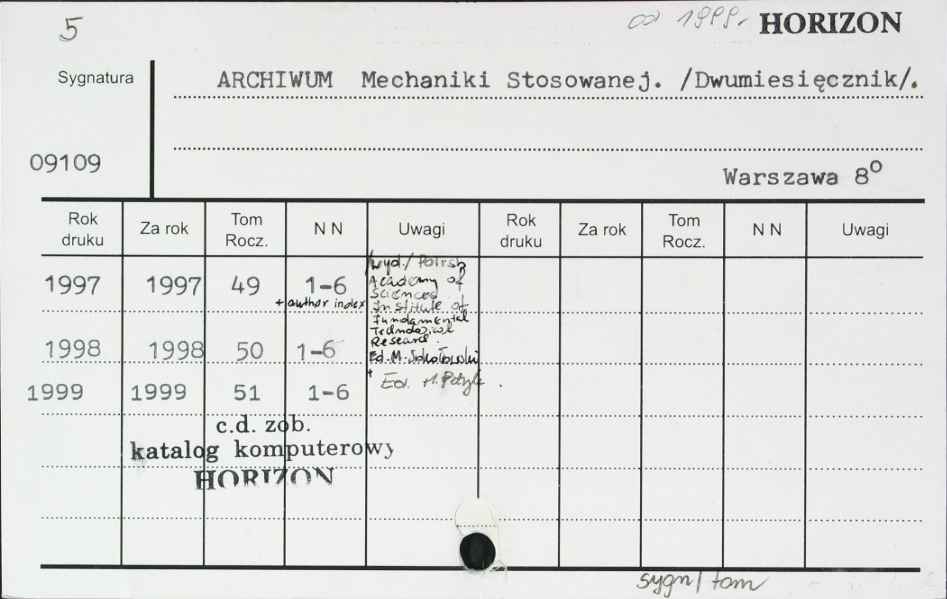 5
od 1999. HORIZON
Sygnatura
ARCHIWUM Mechaniki Stosowanej. /Dwumiesięcznik/.
09109
Warszawa 8°
Rok druku Za rok Tom Rocz. N N Uwagi Rok druku Za rok Tom Rocz. N N Uwagi
1997 1997 49 1-6
+ author index
/wyd./ Polish
Academy of
Sciences
Institute of
Fundamental
Technological
Research
Ed. M. Sokołowski
1998 1998 50 1-6
1999 1999 51 1-6
+ Ed.
c.d. zob.
katalog komputerowy
HORIZON
sygn/tom